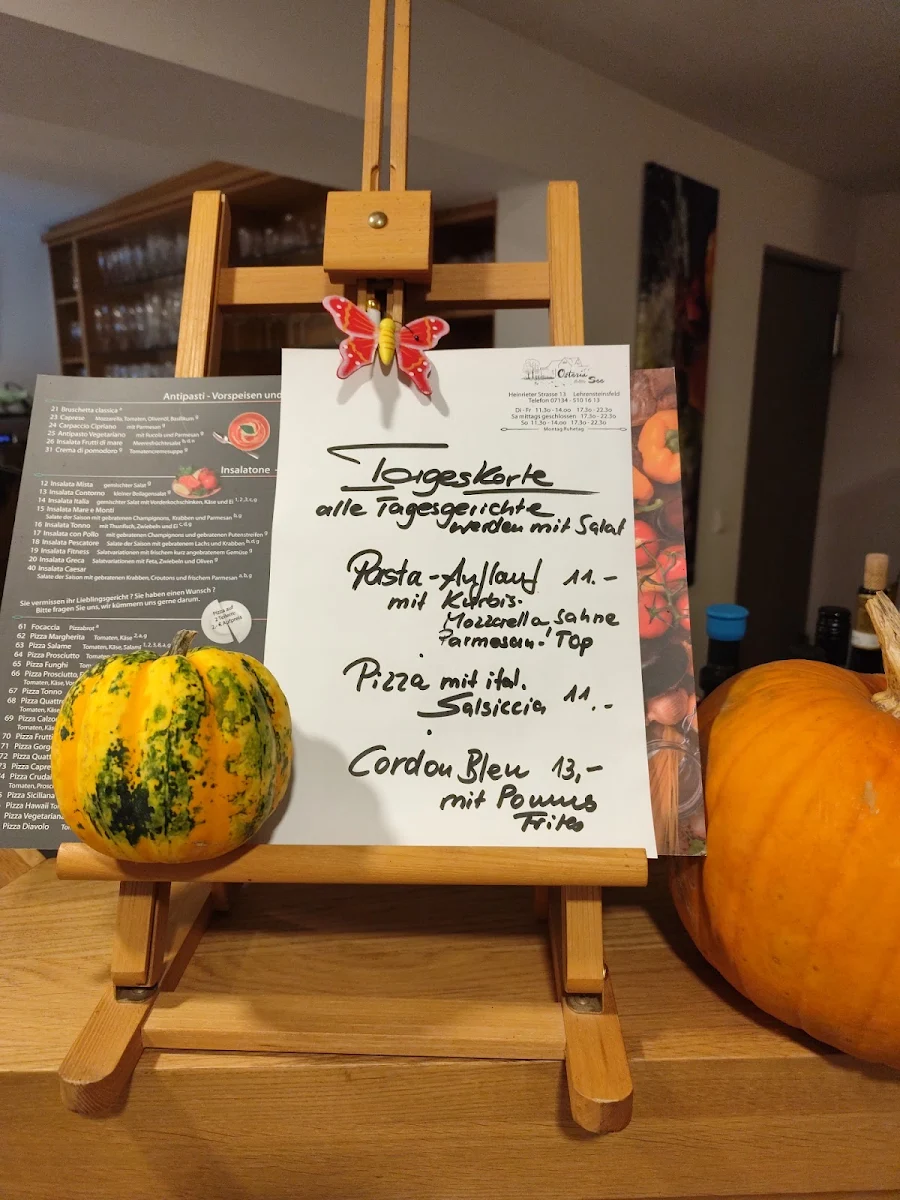 Antipasti - Vorspeisen und
21 Bruschetta classica
23 Caprese Mozzarella, Tomaten, Olivenöl, Basilikum
24 Carpaccio Cipriano mit Parmesan
25 Antipasto Vegetariano mit Rucola und Parmesan
26 Insalata Frutti di mare Meeresfrüchtesalat
31 Crema di pomodoro Tomatencremesuppe
Insalatone -
12 Insalata Mista gemischter Salat
13 Insalata Contorno kleiner Beilagensalat
14 Insalata Italia gemischter Salat mit Vorderkochschinken, Käse und Ei
15 Insalata Mare e Monti
Salate der Saison mit gebratenen Champignons, Krabben und Parmesan
16 Insalata Tonno mit Thunfisch, Zwiebeln und
17 Insalata con Pollo mit gebratenen Champignons und gebratenen Putenstreifen
18 Insalata Pescatore Salate der Saison mit gebratenem Lachs und Krabben
19 Insalata Fitness Salatvariationen mit frischem kurz angebratenem Gemüse
20 Insalata Greca Salatvariationen mit Feta, Zwiebeln und Oliven
40 Insalata Caesar
Salate der Saison mit gebratenen Krabben, Croutons und frischem Parmesan
Sie vermissen ihr Lieblingsgericht ? Sie haben einen Wunsch ?
Bitte fragen Sie uns, wir kümmern uns gerne darum.
Pizza auf
2 Tellern:
2,- € Aufpreis
61 Focaccia Pizzabrot
62 Pizza Margherita Tomaten, Käse
63 Pizza Salame Tomaten, Käse, Salami
64 Pizza Prosciutto
65 Pizza Funghi
66 Pizza Prosciutto,
Tomaten, Käse,
67 Pizza Tonno
68 Pizza
69 Pizza
70 Pizza
71 Pizza
72 Pizza
73 Pizza
74 Pizza
Pizza Siciliana
Pizza Hawaii
Pizza Vegetariana
Pizza Diavolo
Osteria
am See
Heinrieter Strasse 13 Lehrensteinsfeld
Telefon 07134 - 510 16 13
Di - Fr 11.30 - 14.00 17.30 - 22.30
Sa mittags geschlossen 17.30 - 22.30
So 11.30 - 14.00 17.30 - 22.30
Montag Ruhetag
Tageskarte
alle Tagesgerichte
werden mit Salat
Pasta-Auflauf 11.-
mit Kürbis.
Mozzarella, Sahne
Parmesan! Top
Pizza mit ital.
Salsiccia 11.-
Cordon Bleu 13,-
mit Pommes
Frites